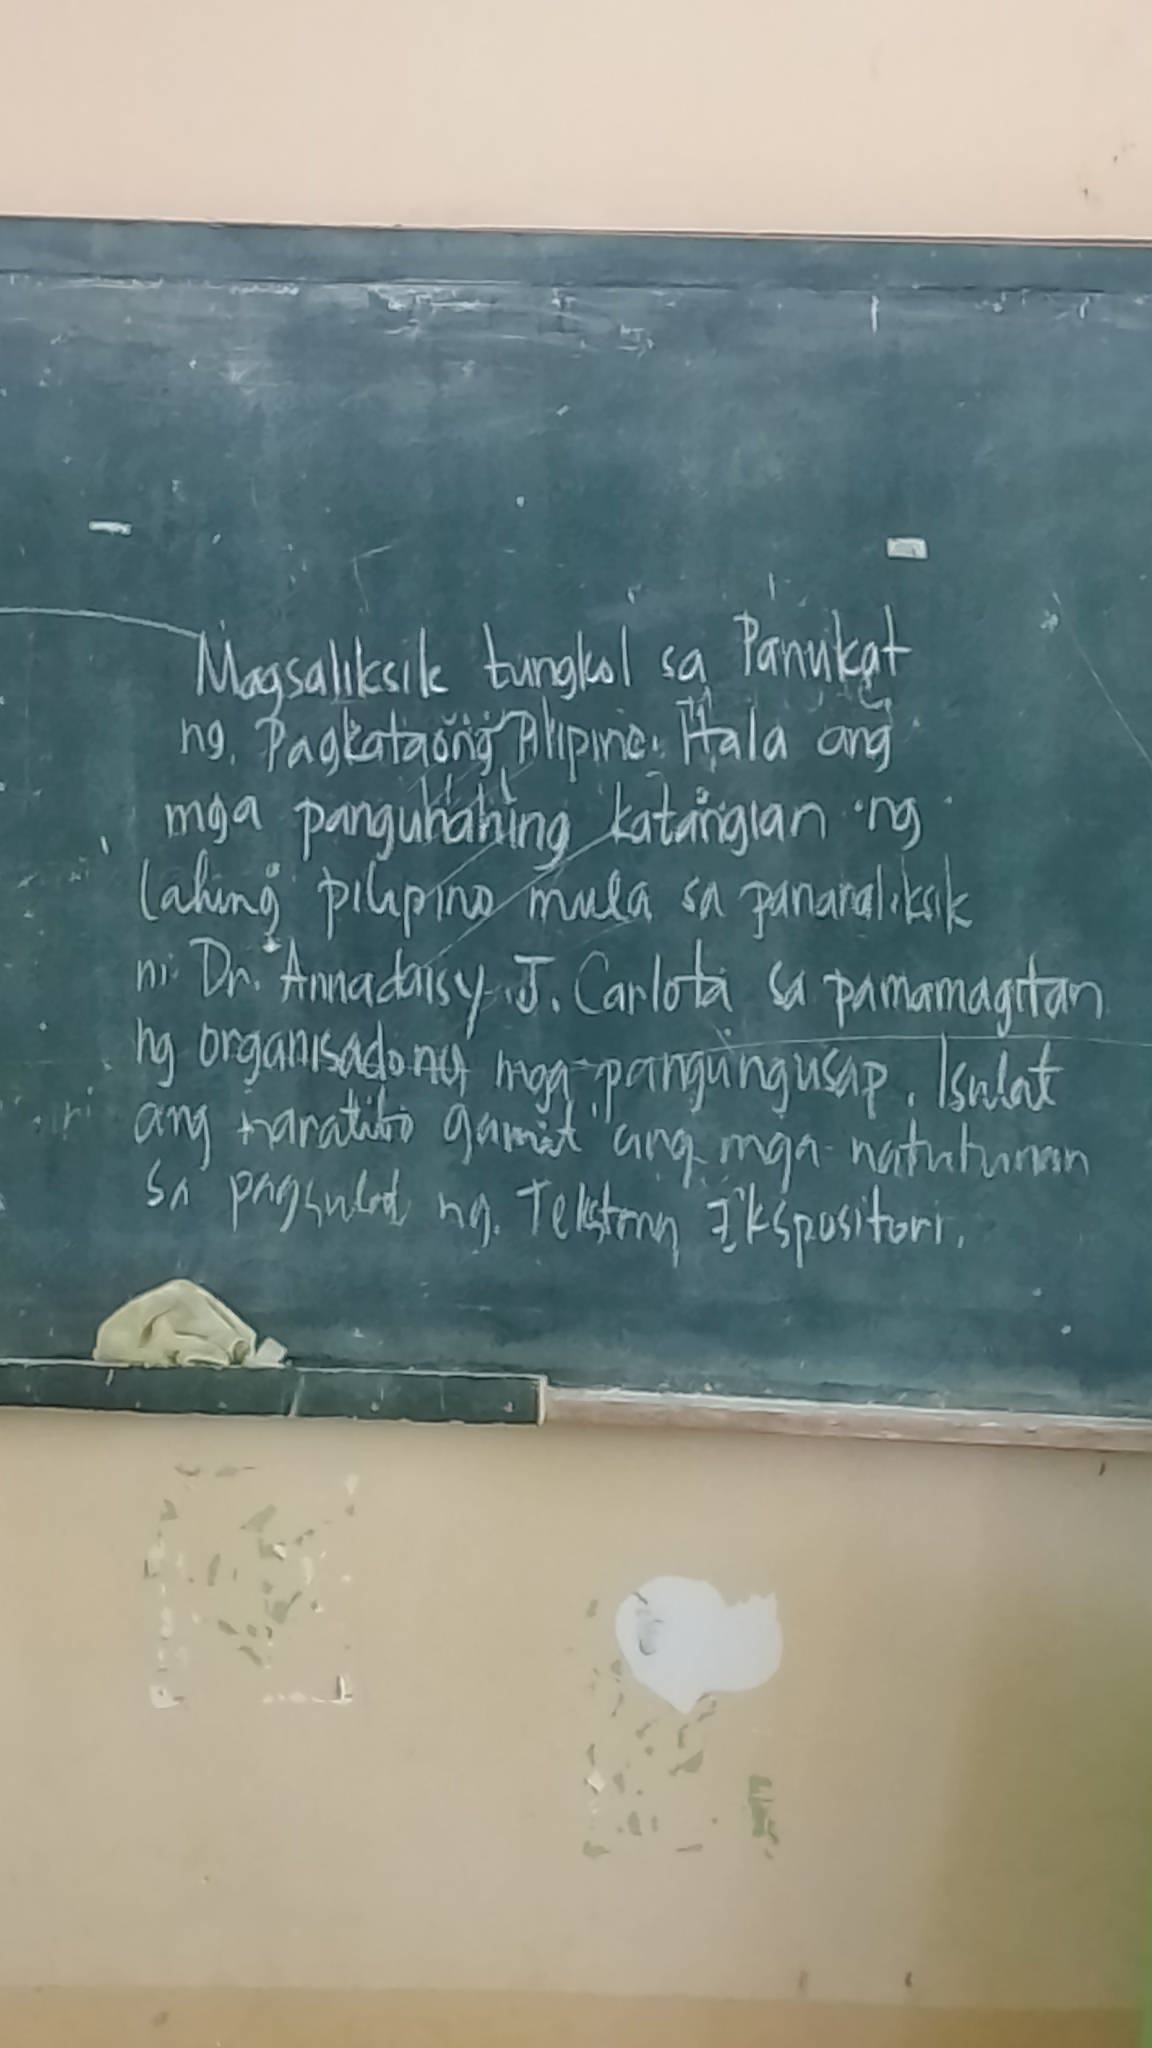 Magsaliksik tungkol sa Panukat
ng Pagkataong Pilipino. Itala ang
mga panguhahing katangian ng
lahing pilipino mula sa pananaliksik
ni Dr. Annadaisy J. Carlota sa pamamagitan
ng organisadong mga pangungusap. Isulat
ang naratibo gamit ang mga natutunan
sa pagsulat ng Tekstong Ekspositori.